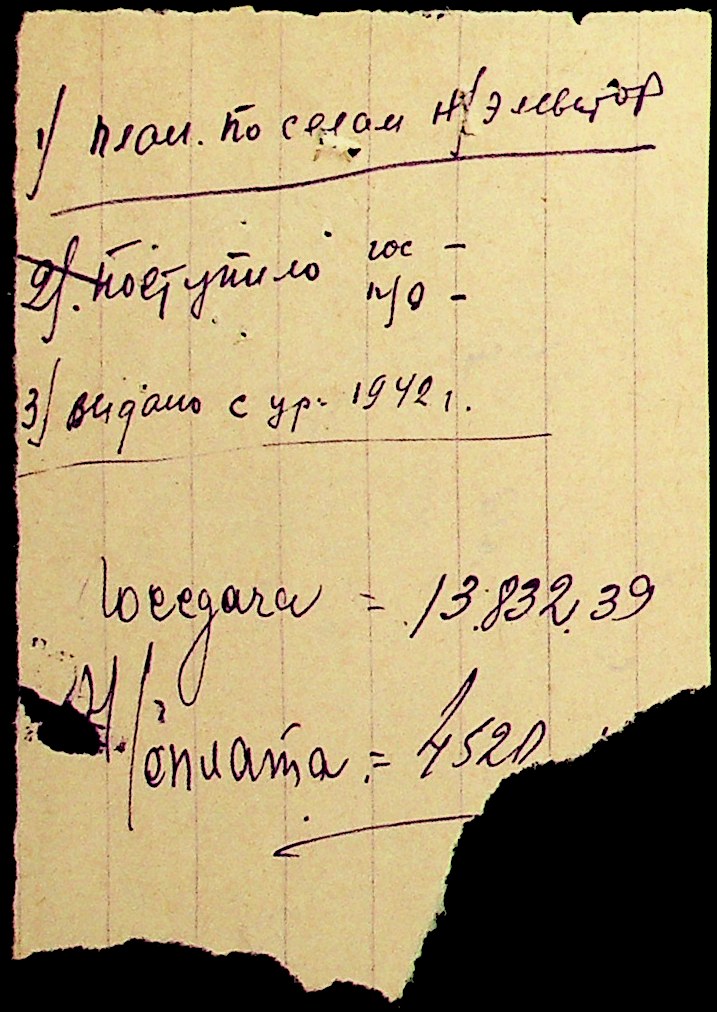 1) план. по селам н/элеватор
2). Поступило гос -
н/о -
3) видано с ур. 1942 г.
Госсдача = 13.832.39
Н/оплата = 4520